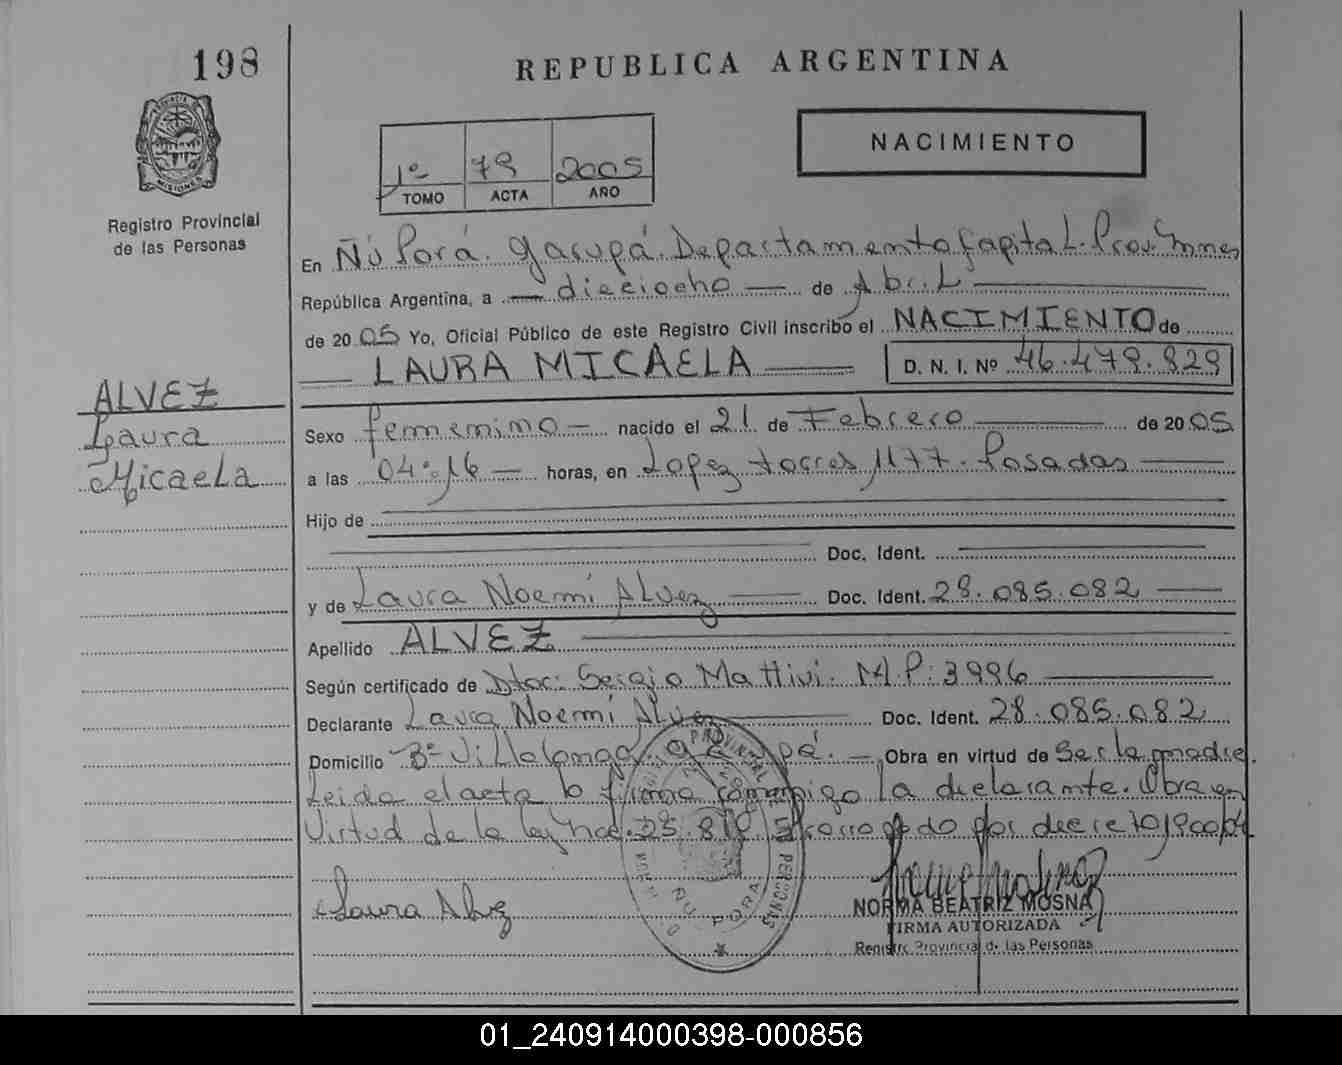 198
REPUBLICA ARGENTINA
NACIMIENTO
1º 79 2005
TOMO ACTA AÑO
PROVINCIA DE MISIONES
Registro Provincial
de las Personas
En Ñú Porá. Garupá. Departamento Capital. Prov. Mnes
República Argentina, a dieciocho de Abril
de 2005 Yo, Oficial Público de este Registro Civil inscribo el NACIMIENTO de
LAURA MICAELA D. N. I. Nº 46.479.829
ALVEZ
Laura
Micaela
Sexo femenino nacido el 21 de Febrero de 2005
a las 04:16 horas, en Lopez torres 1177. Posadas
Hijo de
Doc. Ident.
y de Laura Noemí Alvez Doc. Ident. 28.085.082
Apellido ALVEZ
Según certificado de Dtor: Sergio Mattivi. M.P: 3996
Declarante Laura Noemí Alvez Doc. Ident. 28.085.082
Domicilio Bº Villalonga garupá. Obra en virtud de Ser la madre.
Leida el acta la firma conmigo la declarante. Obra en
Virtud de la ley nac. 25.819 prorrogado por decreto 1900/04
Laura Alvez
ÑU PORA
NORMA BEATRIZ MOSNA
FIRMA AUTORIZADA
Registro Provincial de las Personas
01_240914000398-000856